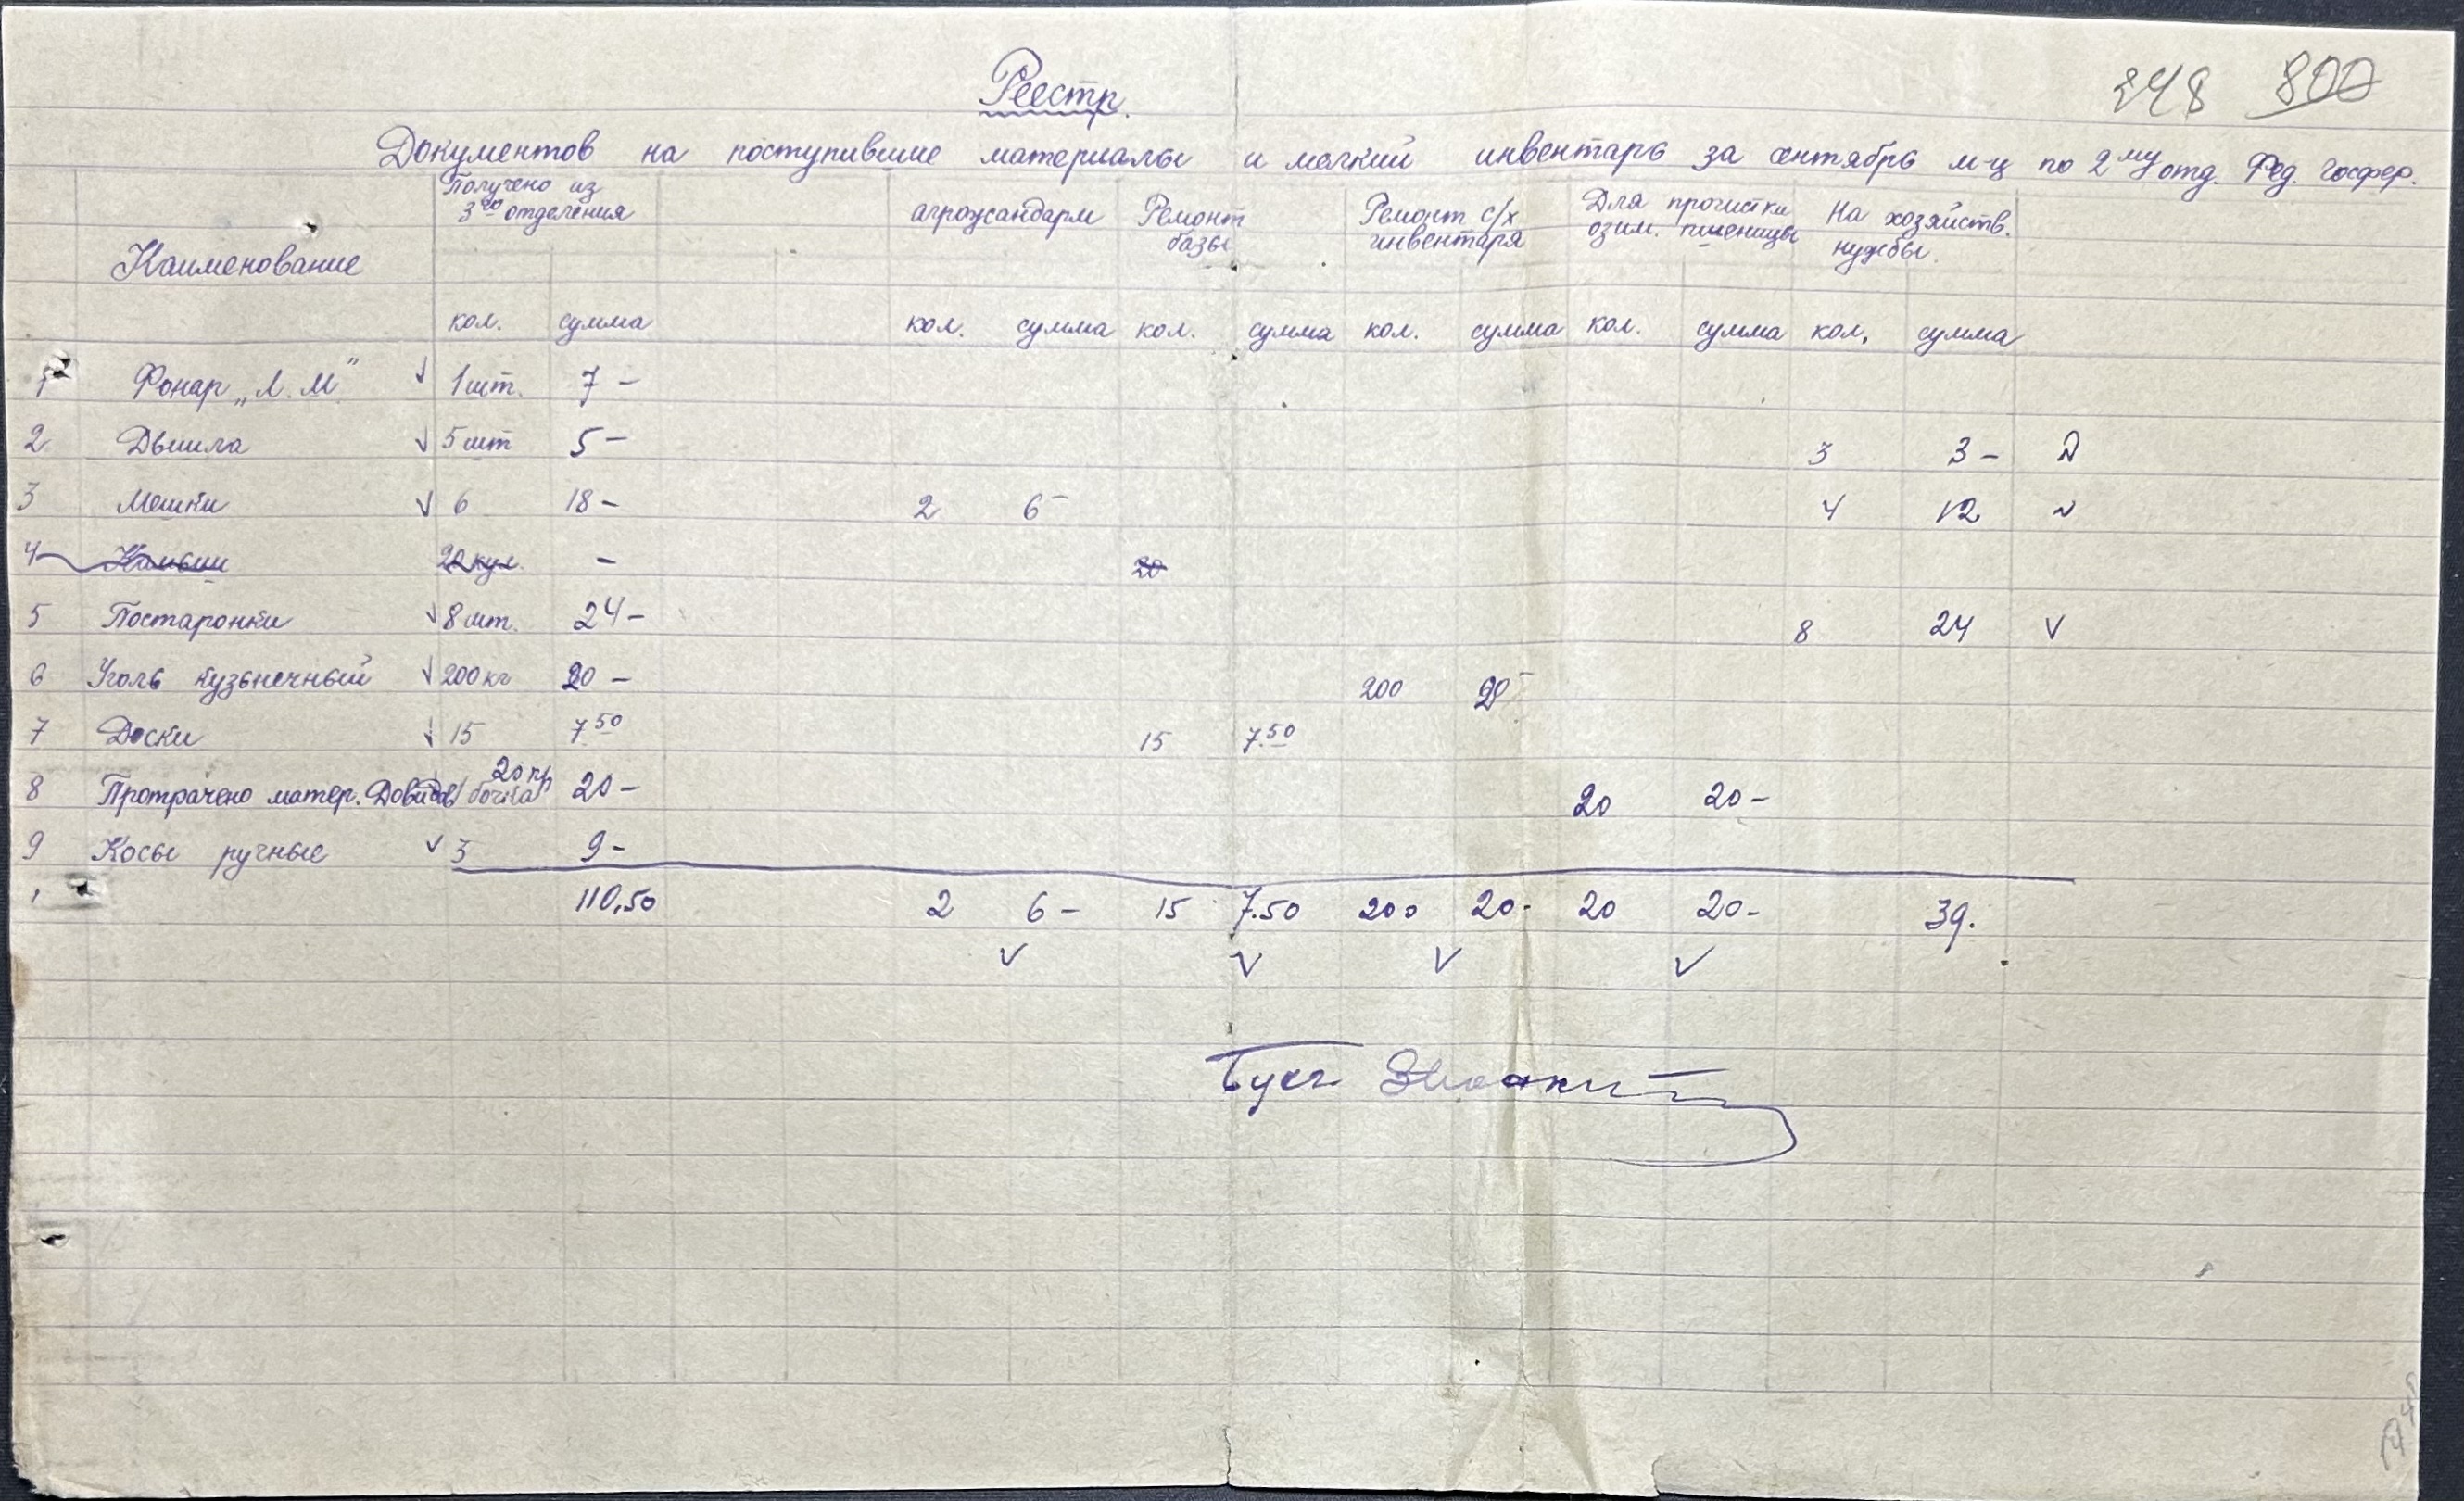 248 800
Реестр.
Документов на поступившие материалы и мелкий инвентарь за сентябрь м-ц по 2му отд. Фед. Госфер.
Наименование Получено из 3го отделения агрожандарм Ремонт базы Ремонт с/х инвентаря Для прочистки озим. пшеницы На хозяйств. нужды.
кол. сумма кол. сумма кол. сумма кол. сумма кол. сумма кол. сумма
1 Фонар „Л.М” 1 шт. 7 –
2 Дышла 5 шт 5 – 3 3 –
3 Мешки 6 18 – 2 6 – 4 12
4 Камыш 20 кул. – 20
5 Постаронки 8 шт. 24 – 8 24
6 Уголь кузьнечный 200 кг 20 – 200 20 –
7 Доски 15 7.50 15 7.50
8 Протрачено матер. 20 кг бочка 20 – 20 20 –
9 Косы ручные 3 9 –
110,50 2 6 – 15 7.50 200 20 – 20 20 – 39.
Бухг.